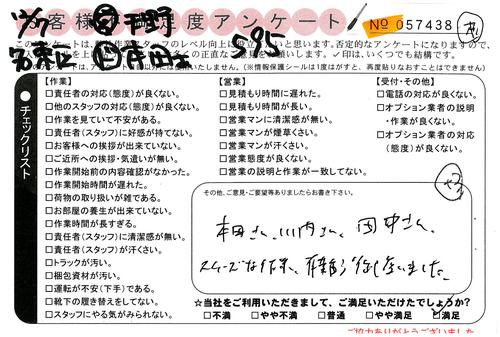 お客様満足度アンケート
No 057438
【作業】
□責任者の対応(態度)が良くない。
□他のスタッフの対応(態度)が良くない。
□作業を見ていて不安がある。
□責任者(スタッフ)に好感が持てない。
□お客様への挨拶が出来ていない。
□ご近所への挨拶・気遣いが無い。
□作業開始前の内容確認がなかった。
□作業開始時間が遅れた。
□荷物の取り扱いが雑である。
□お部屋の養生が出来ていない。
□作業時間が長すぎる。
□責任者(スタッフ)に清潔感が無い。
□責任者(スタッフ)が汗くさい。
□トラックが汚い。
□梱包資材が汚い。
□運転が不安(下手)である。
□靴下の履き替えをしてない。
□スタッフにやる気がみられない。
【営業】
□見積もり時間に遅れた。
□見積もり時間が長い。
□営業マンに清潔感が無い。
□営業マンが煙草くさい。
□営業マンが汗くさい。
□営業態度が良くない。
□営業の説明と作業が一致してない。
【受付・その他】
□電話の対応が良くない。
□オプション業者の説明
・作業が良くない。
□オプション業者の対応
(態度)が良くない。
チェックリスト
その他、ご意見・ご要望等ありましたらお書き下さい。
本田さん、川内さん、田中さん、
スムーズな作業、有難うございました。
☆当社をご利用いただきまして、ご満足いただけたでしょうか?
□不満 □やや不満 □普通 □やや満足 □満足
ご協力ありがとうございました